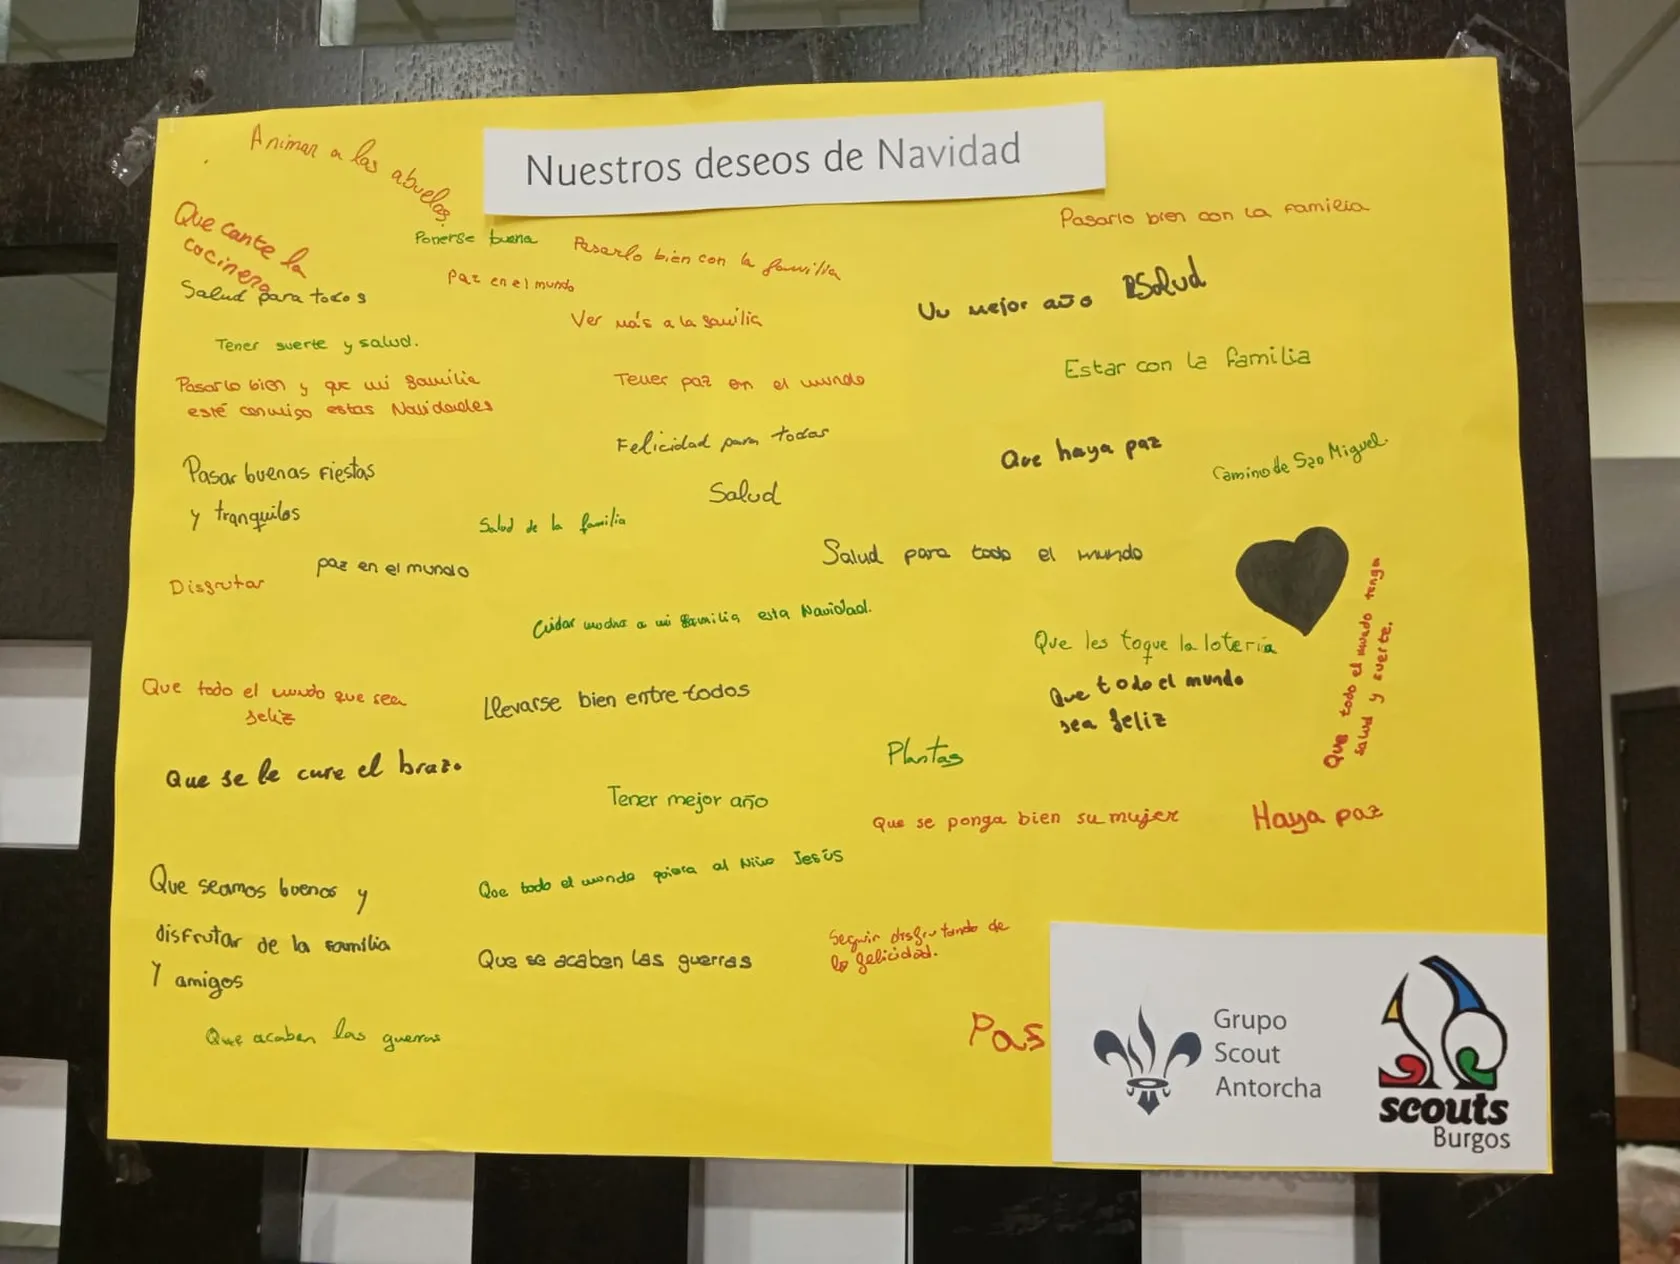 Nuestros deseos de Navidad
Animar a las abuelas
Que cante la
cocinera
Ponerse buena
Pasarlo bien con la familia
Pasarlo bien con la familia
Salud para todos
Paz en el mundo
Ver más a la familia
Un mejor año
Salud
Tener suerte y salud.
Estar con la familia
Pasarlo bien y que mi familia
esté conmigo estas Navidades
Tener paz en el mundo
Felicidad para todas
Que haya paz
Camino de Sao Miguel.
Pasar buenas fiestas
y tranquilos
Salud
Salud de la familia
Salud para todo el mundo
Disfrutar
paz en el mundo
Cuidar mucho a mi familia esta Navidad.
Que les toque la lotería
Que todo el mundo tenga
salud y suerte.
Que todo el mundo que sea
feliz
Llevarse bien entre todos
Que todo el mundo
sea feliz
Que se le cure el brazo
Plantas
Tener mejor año
Que se ponga bien su mujer
Haya paz
Que seamos buenos y
disfrutar de la familia
Y amigos
Que todo el mundo quiera al Niño Jesús
Que se acaben las guerras
Seguir disfrutando de
la felicidad.
Que acaben las guerras
Pas
Grupo
Scout
Antorcha
scouts
Burgos